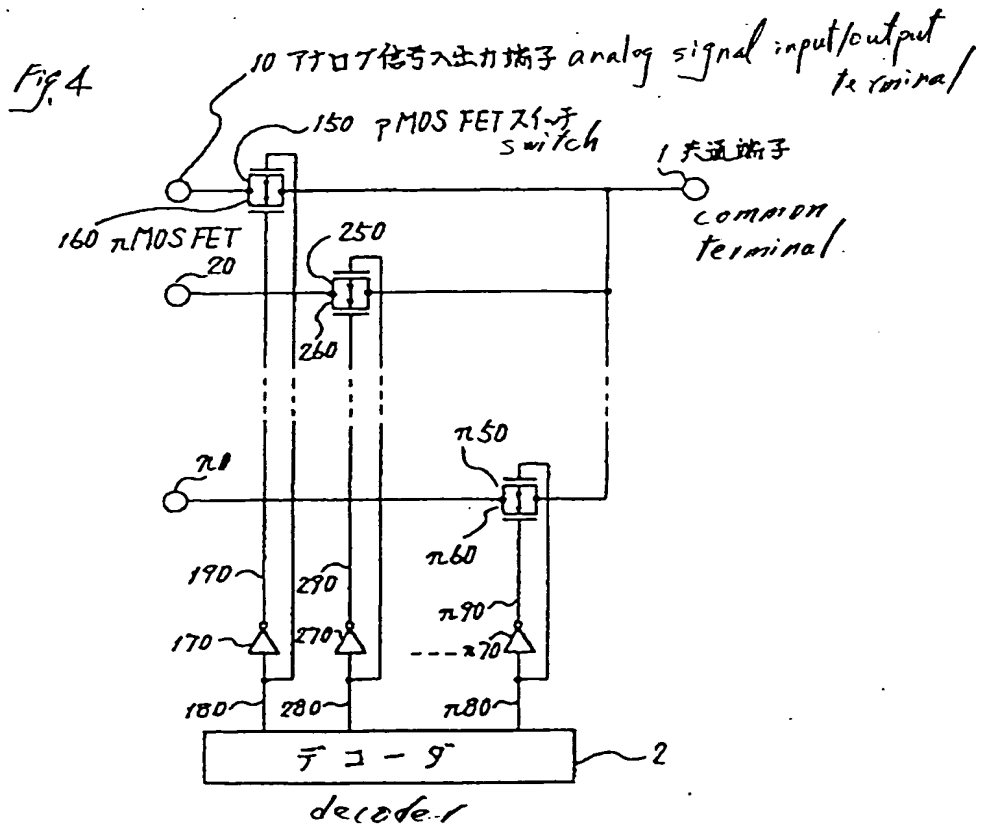 Fig. 4
10 アナログ信号入出力端子 analog signal input/output
terminal
150 pMOS FETスイッチ
switch
1 共通端子
common
terminal
160 nMOS FET
250
20
260
n50
n0
n60
190
290
n90
170
270
---n70
180
280
n80
デコーダ
2
decoder